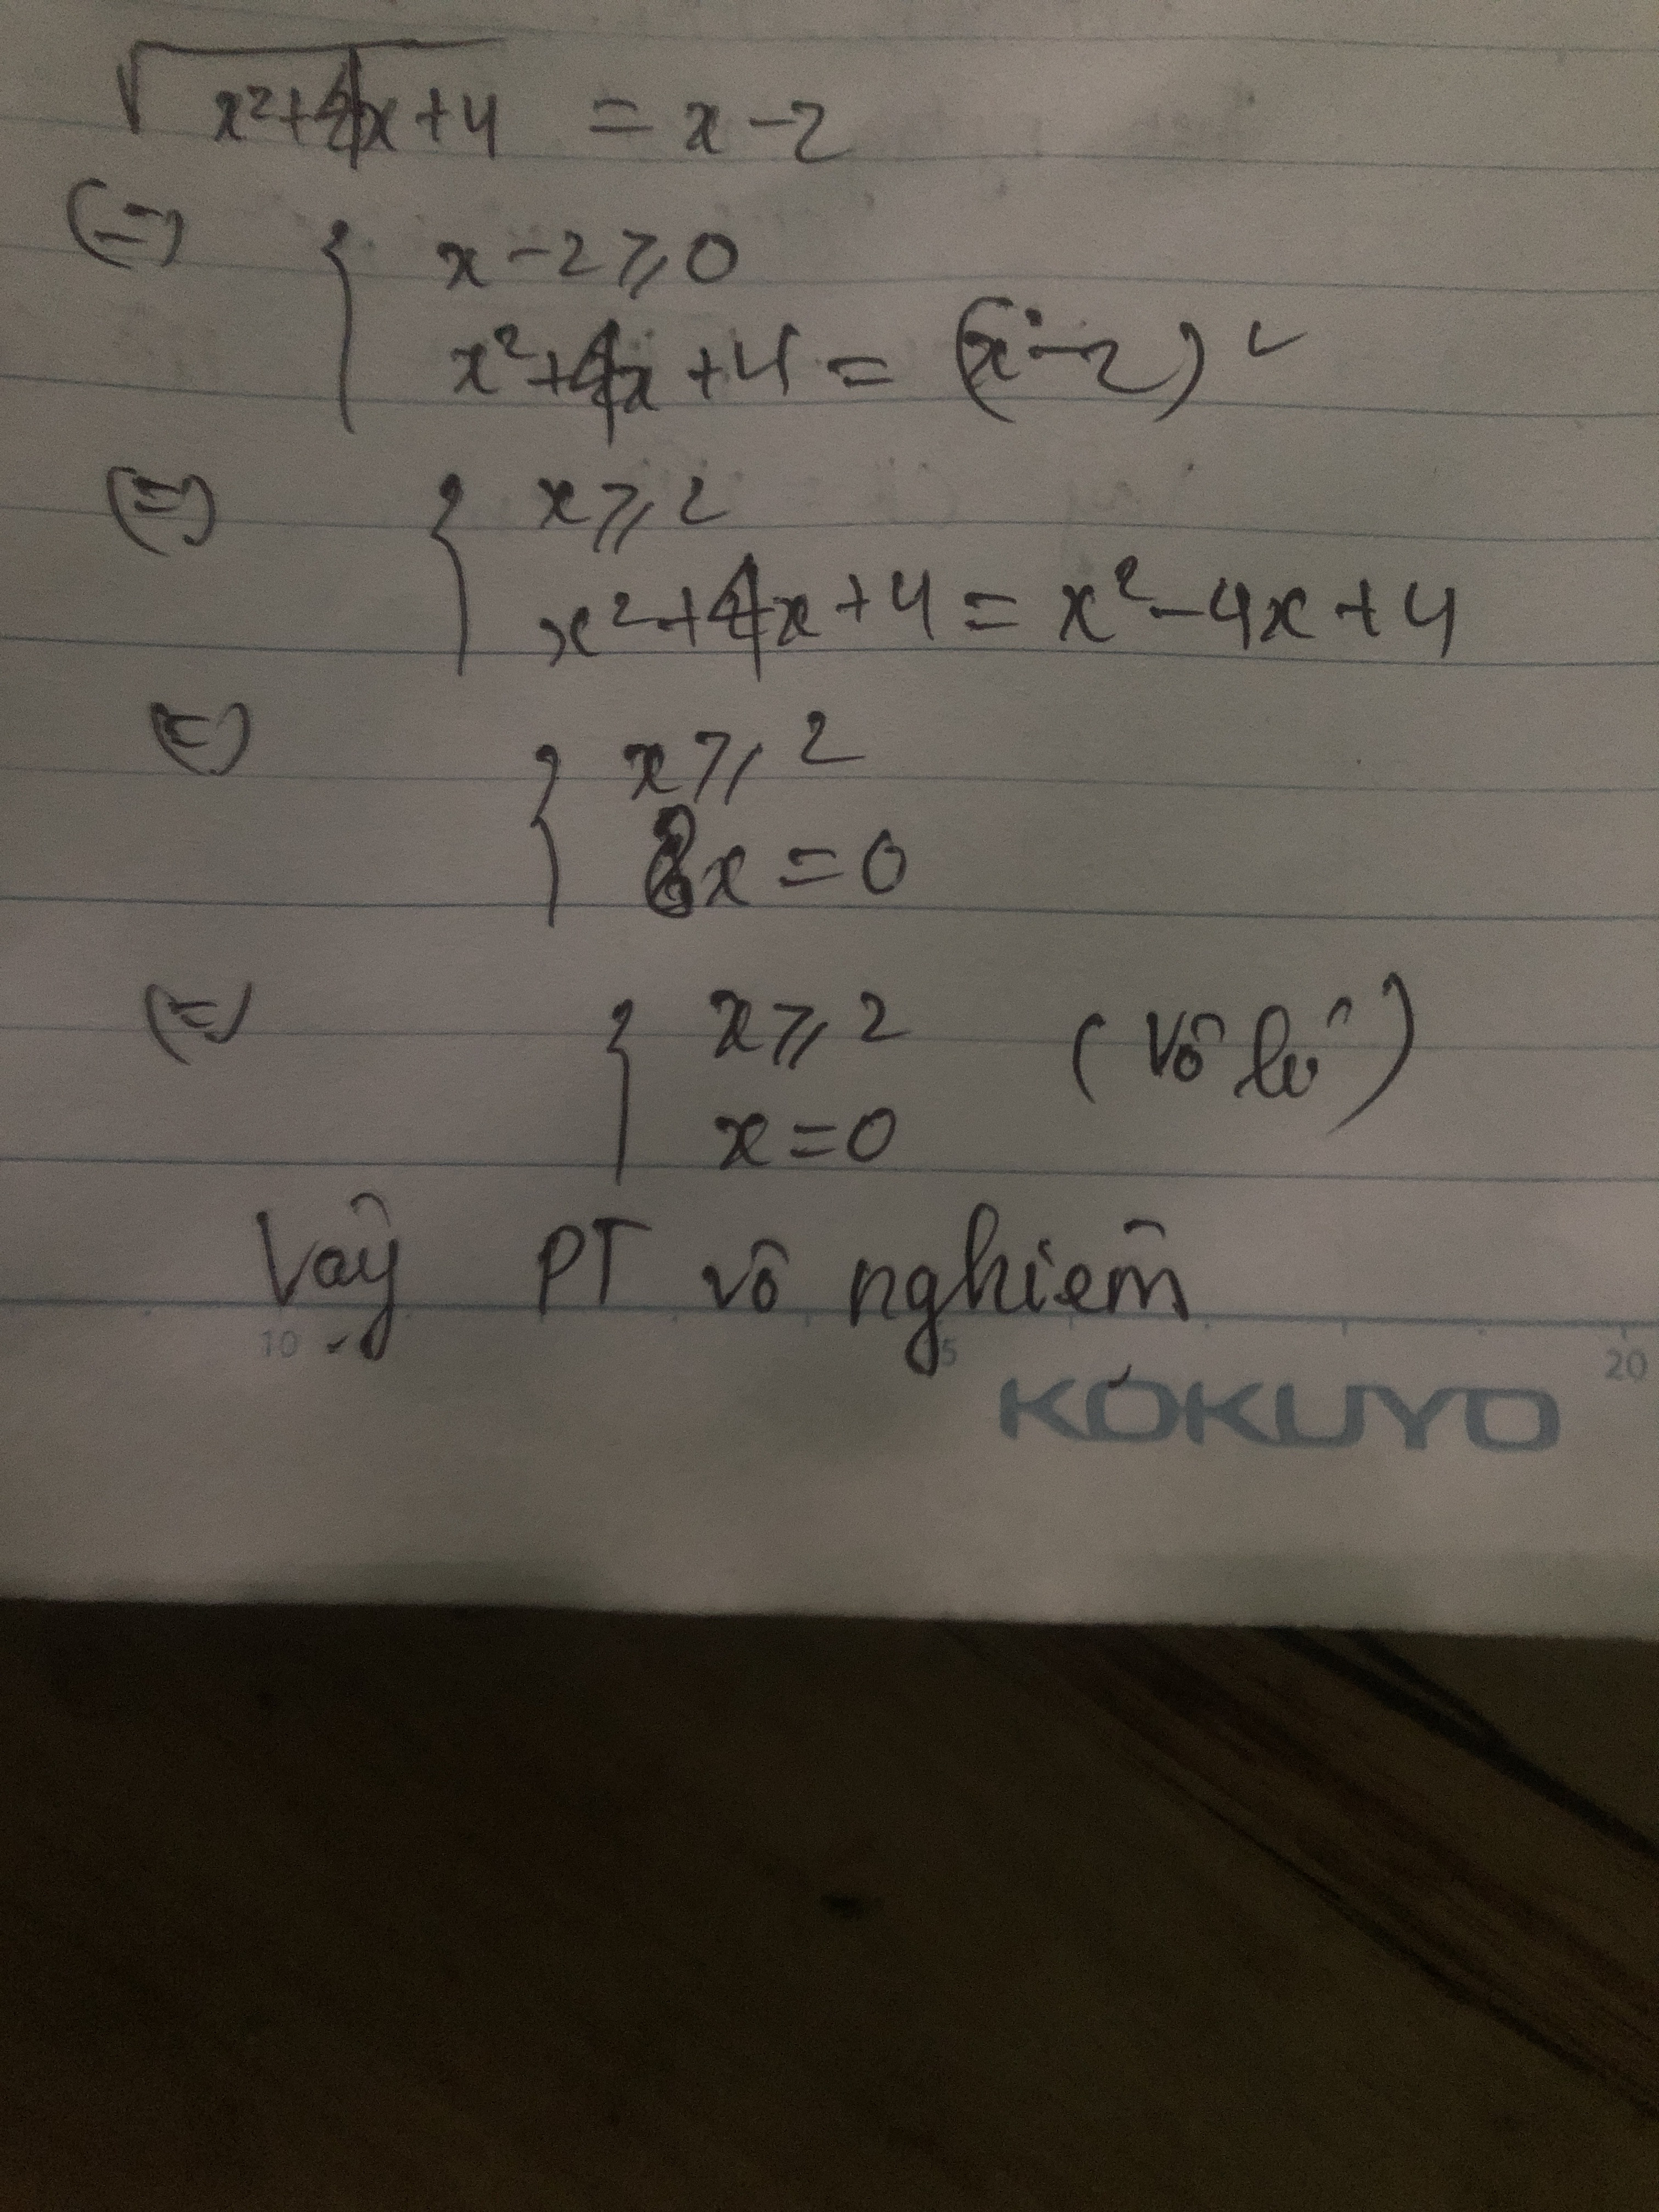 √x²+4x+4 = x-2
(=) { x-2⩾0
x²+4x+4 = (x-2)²
(=) { x⩾2
x²+4x+4 = x²-4x+4
(=) { x⩾2
8x=0
(=) { x⩾2 (Vô lý)
x=0
Vậy PT vô nghiệm
10 15 20
KOKUYO